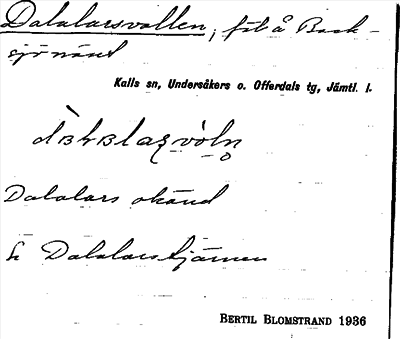 Dalalarsvallen, fäb å Back-
sjönäset
Kalls sn, Undersåkers o. Offerdals tg, Jämtl. l.
Dalalars okänd
h Dalalarstjärnen
BERTIL BLOMSTRAND 1936